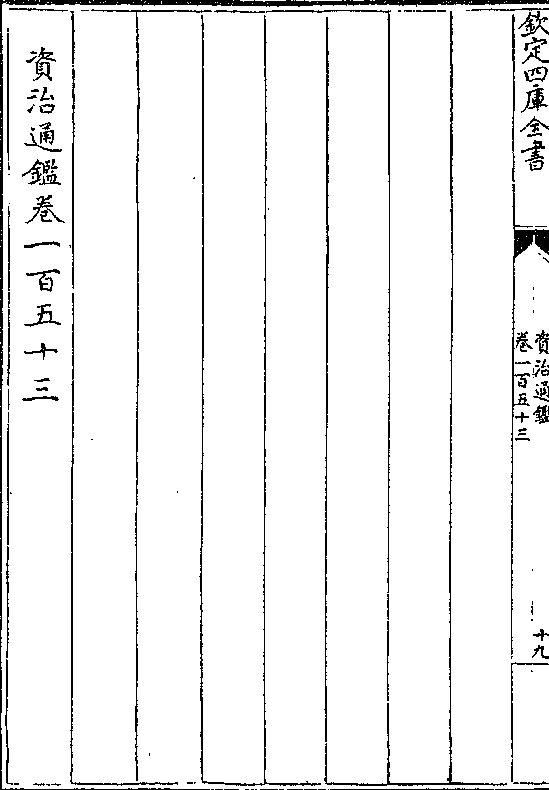 欽定四庫全書
資治通鑑
卷一百五十三
十九
資治通鑑卷一百五十三